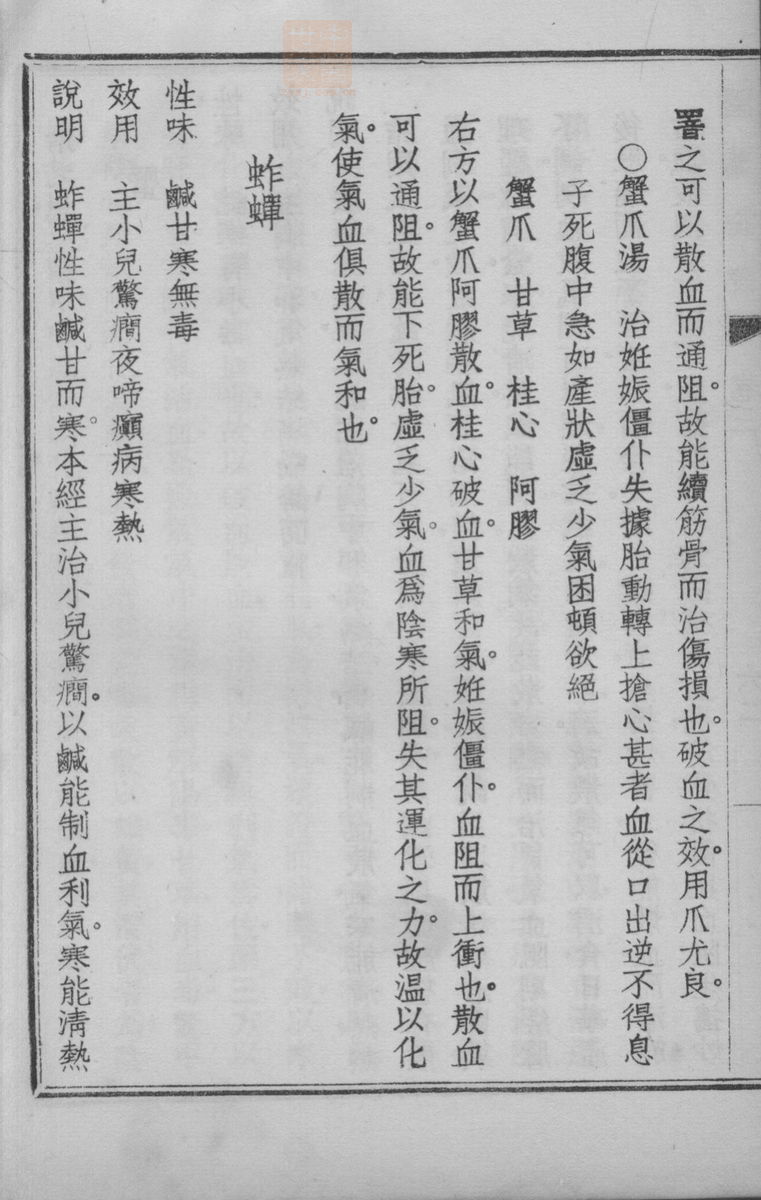 署之可以散血而通阻。故能續筋骨而治傷損也。破血之效。用爪尤良。
○蟹爪湯　治姙娠僵仆失據胎動轉上搶心甚者血從口出逆不得息
子死腹中急如產狀虛乏少氣困頓欲絕
蟹爪　甘草　桂心　阿膠
右方以蟹爪阿膠散血。桂心破血。甘草和氣。姙娠僵仆。血阻而上衝也。散血
可以通阻。故能下死胎。虛乏少氣。血爲陰寒所阻。失其運化之力。故温以化
氣。使氣血俱散而氣和也。
蚱蟬
性味　鹹甘寒無毒
效用　主小兒驚癇夜啼癲病寒熱
說明　蚱蟬性味鹹甘而寒。本經主治小兒驚癇。以鹹能制血利氣。寒能淸熱